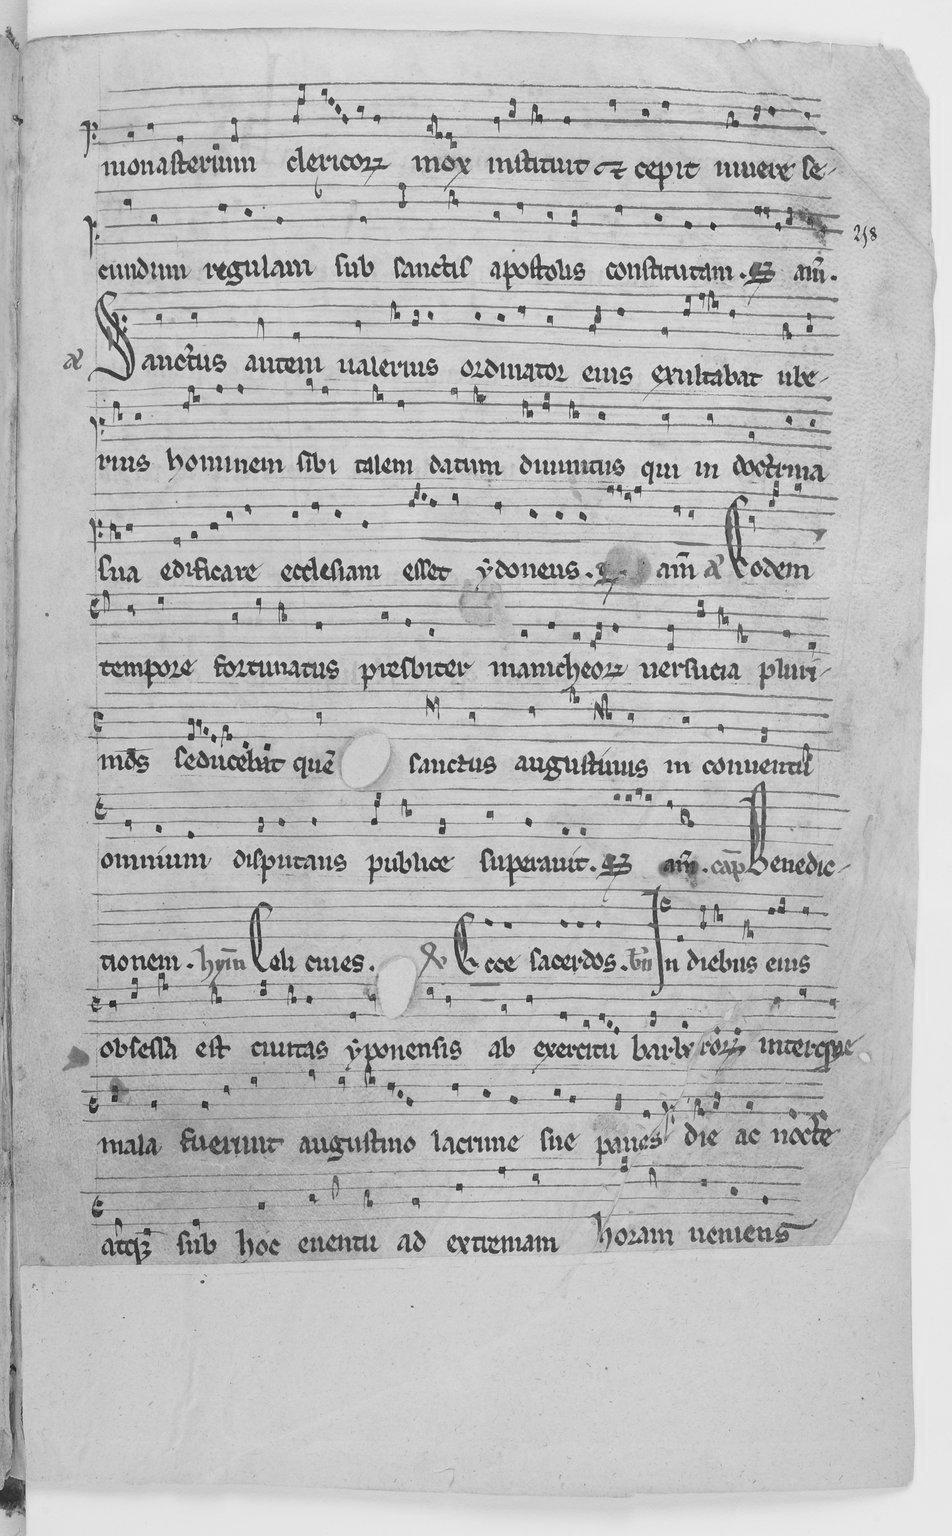 monasterium clericoꝝ mox instituit et cepit uiuere se-
cundum regulam sub sanctis apostolis constitutam. am̄.
258
Sanctus autem ualerius ordinator eius exultabat ube-
rius hominem sibi talem datum diuinitus qui in doctrina
sua edificare ecclesiam esset ydoneus. am̄ Eodem
tempore fortunatus presbiter manicheoꝝ uersucia pluri-
mos seducebat quē sanctus augustinus in conuentu
omnium disputans publice superauit. am̄. cap̄ Benedic-
tionem. hym̄ Celi ciues. Ecce sacerdos. bn̄ In diebus eius
obsessa est ciuitas yponensis ab exercitu barbaroꝝ interqꝫ
mala fuerunt augustino lacrime sue panes die ac nocte
atqꝫ sub hoc euentu ad extremam horam ueniens